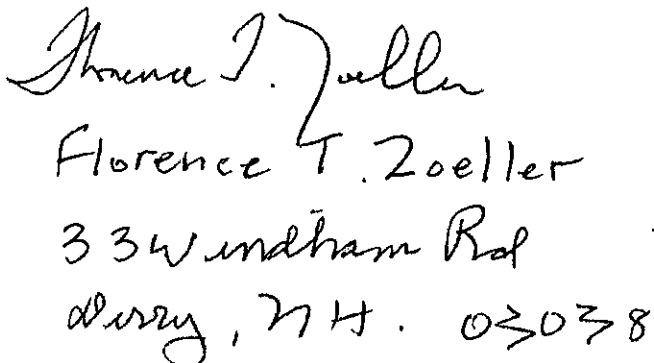 Florence T. Zoeller
Florence T. Zoeller
33 Windham Rd
Derry, NH. 03038